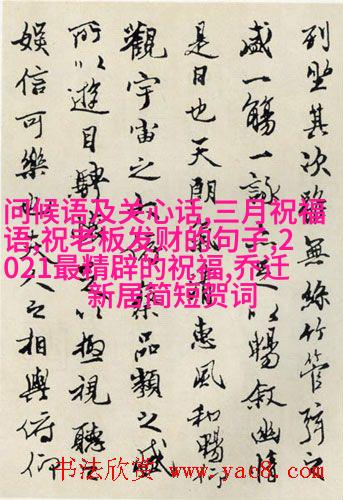 列坐其次雖無絲竹管弦之
盛一觴一詠亦足以暢敘幽情
是日也天朗氣清惠風和暢仰
觀宇宙之大俯察品類之盛
所以遊目騁懷足以極視聽之
娛信可樂也夫人之相與俯仰
问候语及关心话,三月祝福
语,祝老板发财的句子,2
021最精辟的祝福,乔迁
新居简短贺词
书法欣赏 www.yac8.com